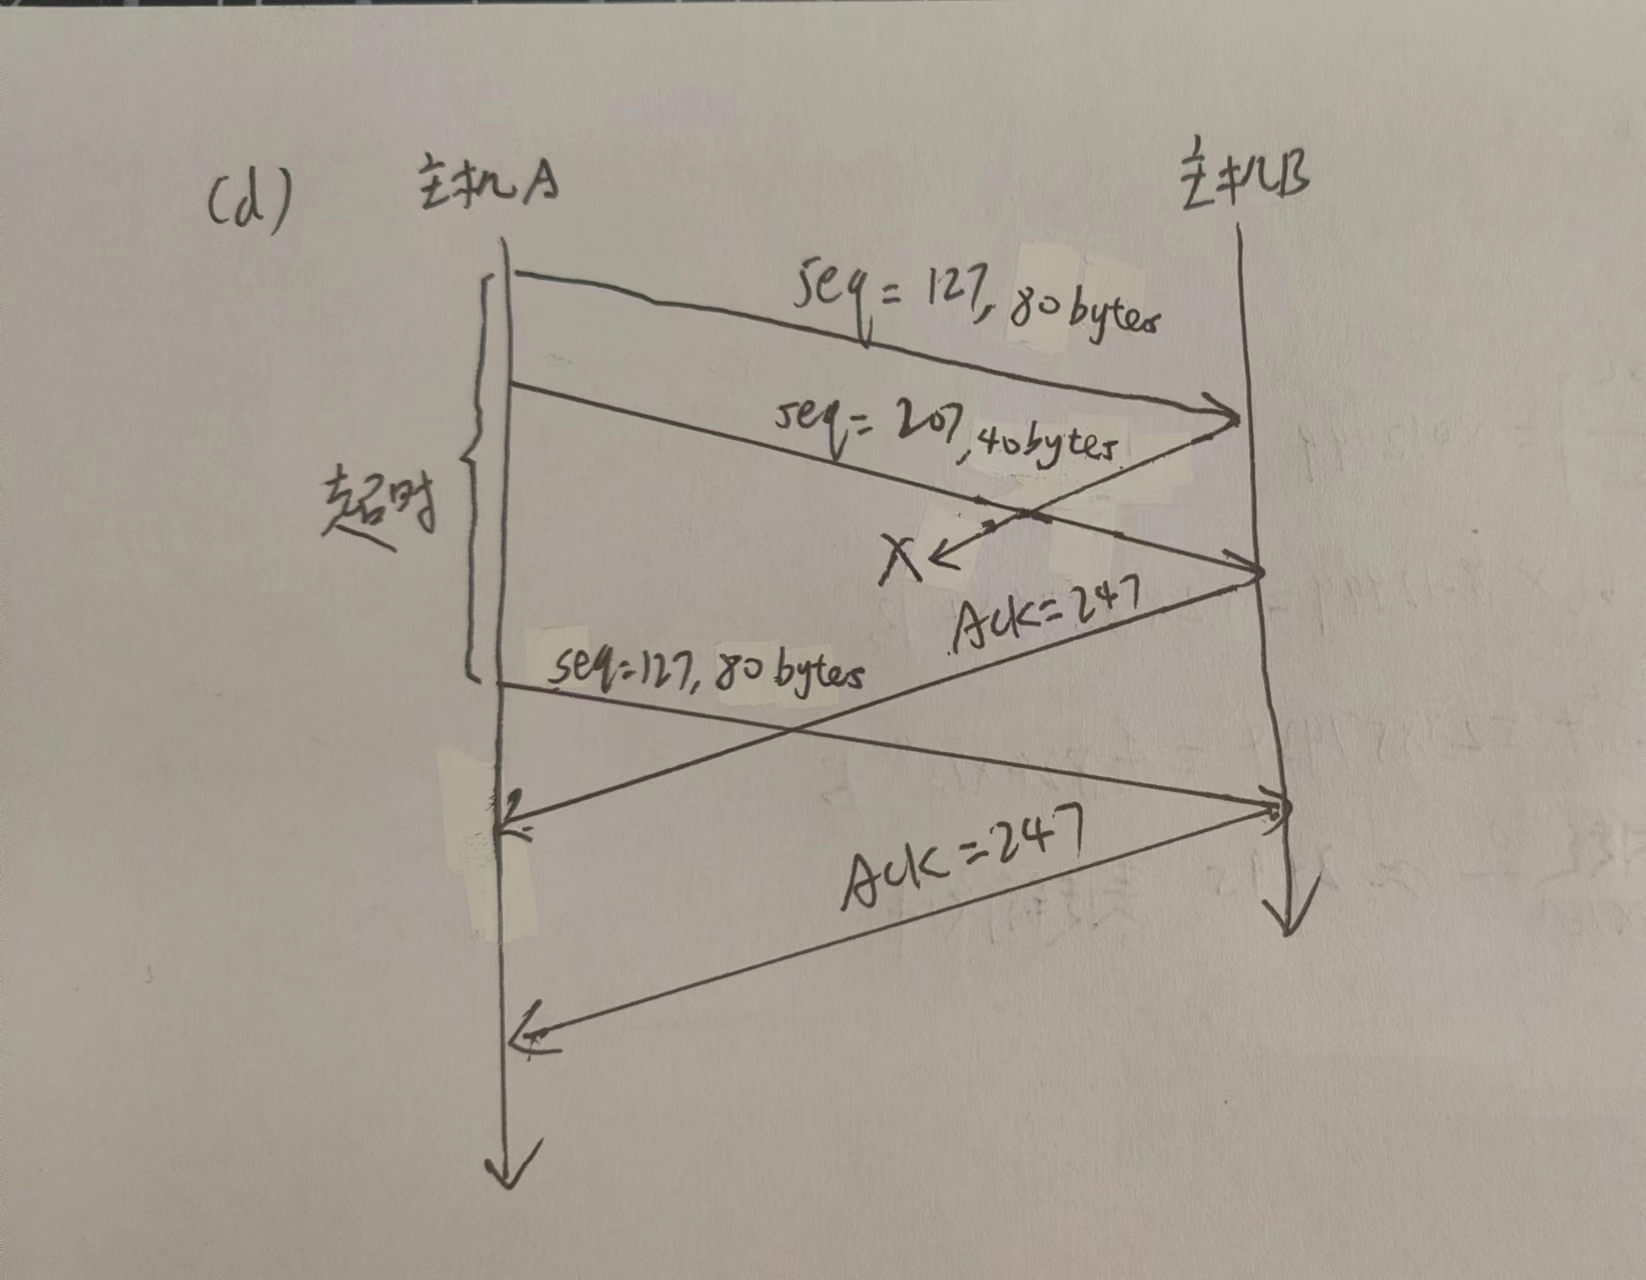 (d) 主机A 主机B
seq = 127, 80 bytes
seq = 207, 40 bytes
超时
X
Ack = 247
seq = 127, 80 bytes
Ack = 247